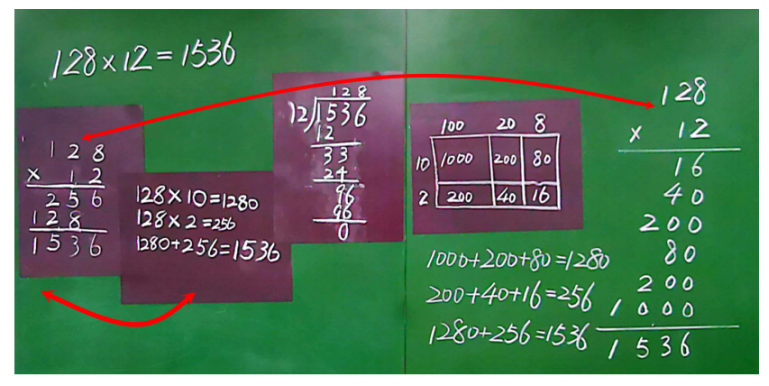 128×12=1536
128
× 12
256
128
1536
128×10=1280
128×2=256
1280+256=1536
128
12)1536
12
33
24
96
96
0
100 20 8
10 1000 200 80
2 200 40 16
1000+200+80=1280
200+40+16=256
1280+256=1536
128
× 12
16
40
200
80
200
1000
1536